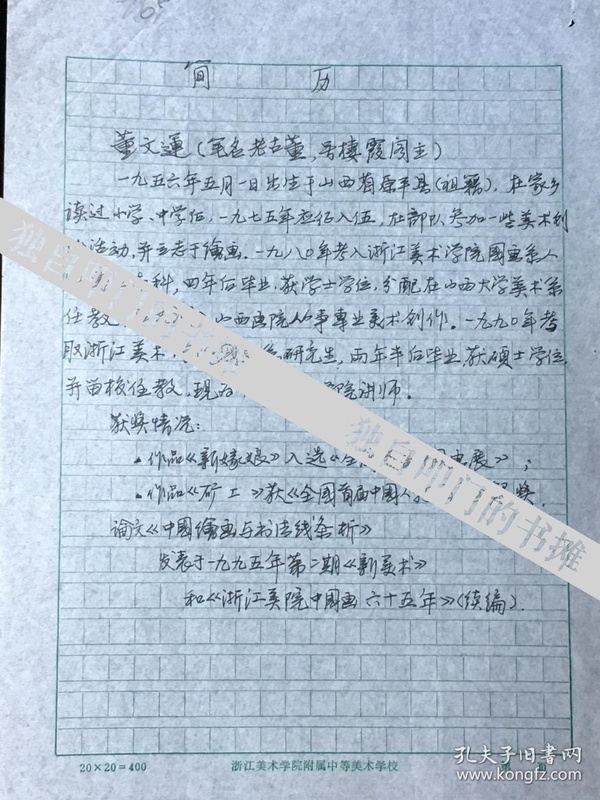 简 历
董文运（笔名老古董，号栖霞阁主）
一九五六年五月一日出生于山西省原平县（祖籍）。在家乡
读过小学、中学后，一九七五年应征入伍，在部队参加一些美术创
活动，并立志于繪画。一九八〇年考入浙江美术学院國画系人
科，四年后毕业，获学士学位，分配在山西大学美术系
任教，山西画院从事专业美术创作。一九九〇年考
取浙江美术 研究生，两年半后毕业，获硕士学位，
并留校任教，现为 院讲师。
获奖情况：
·作品《新嫁娘》入选《全 画展》；
·作品《矿工》获《全國首届中國人 奖
论文《中國繪画与书法线条析》
发表于一九九五年第二期《新美术》
和《浙江美院中國画六十五年》（续编）．
20×20=400 浙江美术学院附属中等美术学校 第
独自叩门的书摊
独自叩门的书摊
孔夫子旧书网
www.kongfz.com